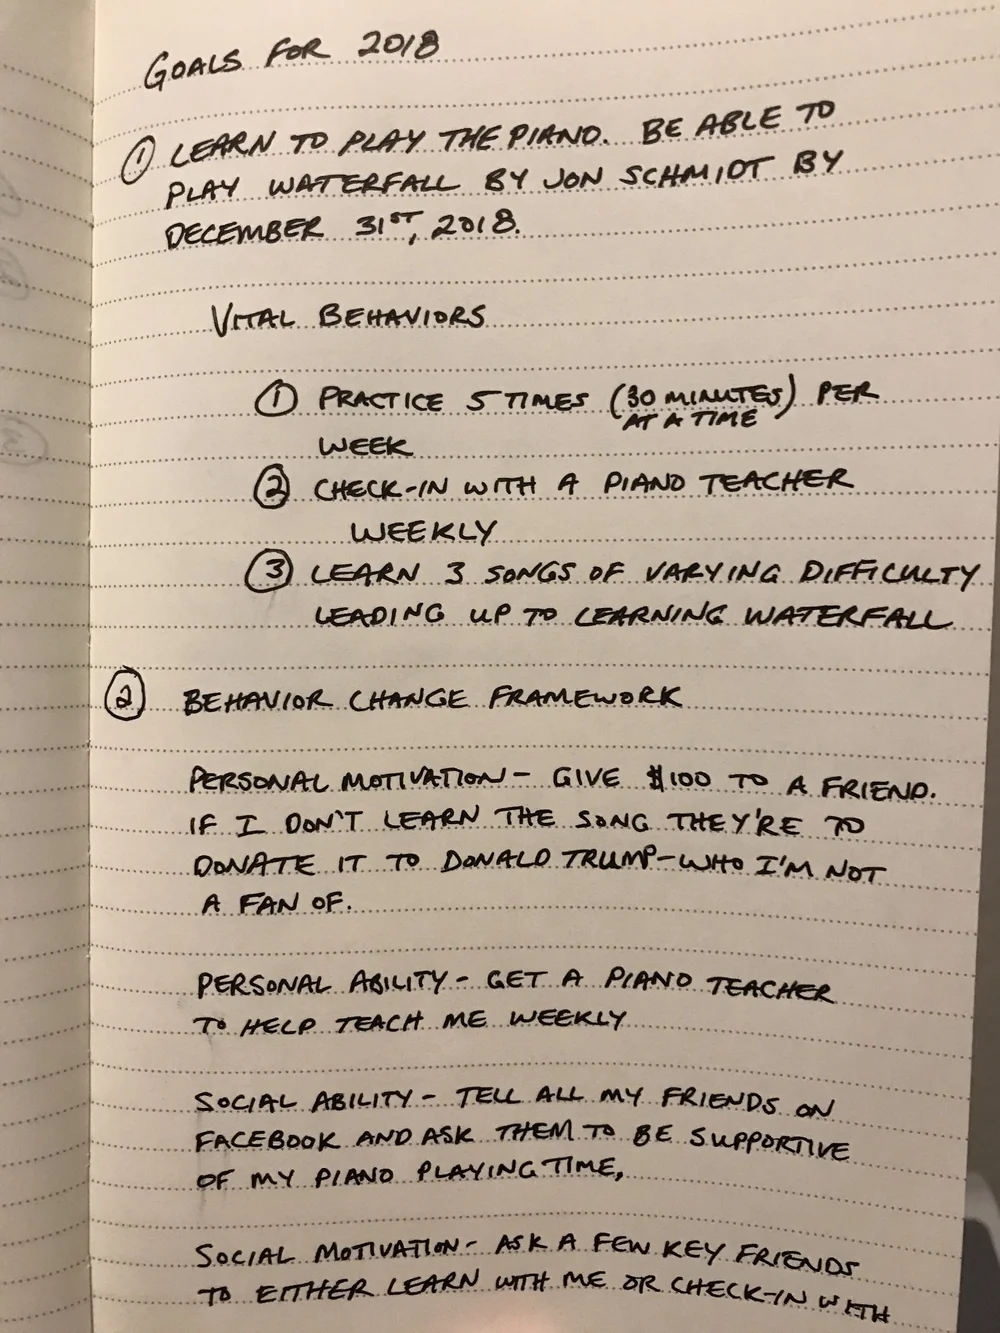 GOALS FOR 2018
① LEARN TO PLAY THE PIANO. BE ABLE TO
PLAY WATERFALL BY JON SCHMIDT BY
DECEMBER 31ST, 2018.
VITAL BEHAVIORS
① PRACTICE 5 TIMES (30 MINUTES) PER
AT A TIME
WEEK
② CHECK-IN WITH A PIANO TEACHER
WEEKLY
③ LEARN 3 SONGS OF VARYING DIFFICULTY
LEADING UP TO LEARNING WATERFALL
② BEHAVIOR CHANGE FRAMEWORK
PERSONAL MOTIVATION - GIVE $100 TO A FRIEND.
IF I DON'T LEARN THE SONG THEY'RE TO
DONATE IT TO DONALD TRUMP - WHO I'M NOT
A FAN OF.
PERSONAL ABILITY - GET A PIANO TEACHER
TO HELP TEACH ME WEEKLY
SOCIAL ABILITY - TELL ALL MY FRIENDS ON
FACEBOOK AND ASK THEM TO BE SUPPORTIVE
OF MY PIANO PLAYING TIME,
SOCIAL MOTIVATION - ASK A FEW KEY FRIENDS
TO EITHER LEARN WITH ME OR CHECK-IN WITH